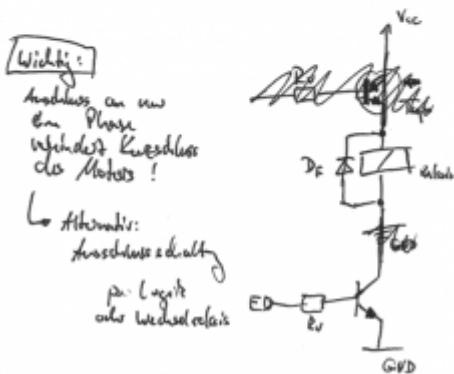 Wichtig:
Anschluss an nur
eine Phase
verhindert Kurzschluss
des Motors!
Alternativ:
Ausschlussschaltg
per Logik
oder Wechselrelais
Vcc
DF
Relais
ED
RV
GND